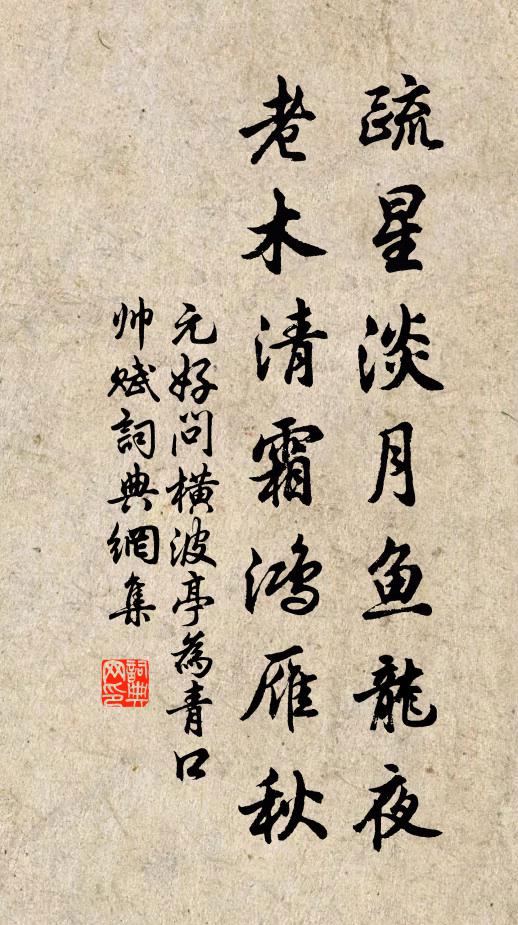 疏星淡月鱼龍夜
老木清霜鴻雁秋
元好问橫波亭為青口
帅赋詞典網集
詞典网印